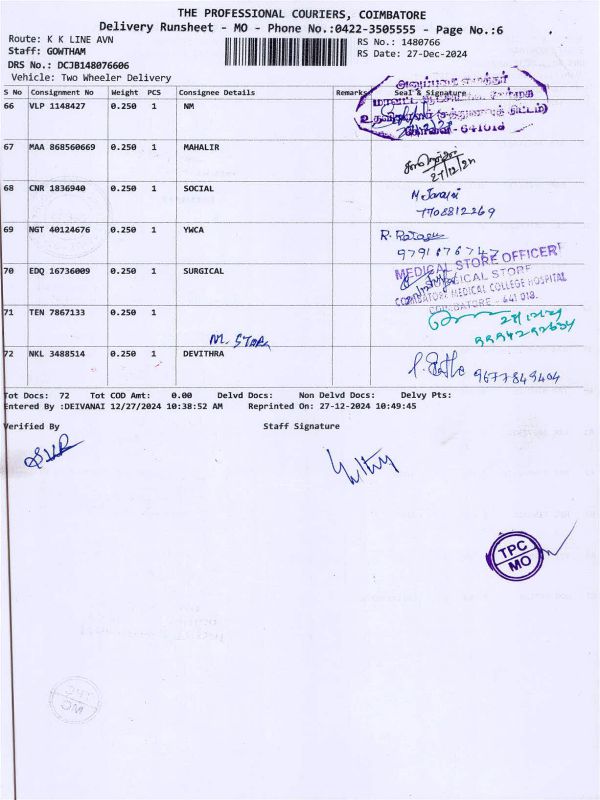 THE PROFESSIONAL COURIERS, COIMBATORE
Delivery Runsheet - MO - Phone No.:0422-3505555 - Page No.:6
Route: K K LINE AVN RS No.: 1480766
Staff: GOWTHAM RS Date: 27-Dec-2024
DRS No.: DCJB148076606
Vehicle: Two Wheeler Delivery
S No Consignment No Weight PCS Consignee Details Remarks Seal & Signature
66 VLP 1148427 0.250 1 NM
641018
67 MAA 868560669 0.250 1 MAHALIR
27/12/24
68 CNR 1836940 0.250 1 SOCIAL
7708812269
69 NGT 40124676 0.250 1 YWCA
9791876747
70 EDQ 16736009 0.250 1 SURGICAL
MEDICAL STORE OFFICER
SURGICAL STORE
COIMBATORE MEDICAL COLLEGE HOSPITAL
COIMBATORE - 641 018.
71 TEN 7867133 0.250 1
M. STORE
72 NKL 3488514 0.250 1 DEVITHRA
9677849404
Tot Docs: 72 Tot COD Amt: 0.00 Delvd Docs: Non Delvd Docs: Delvy Pts:
Entered By :DEIVANAI 12/27/2024 10:38:52 AM Reprinted On: 27-12-2024 10:49:45
Verified By Staff Signature
TPC
MO